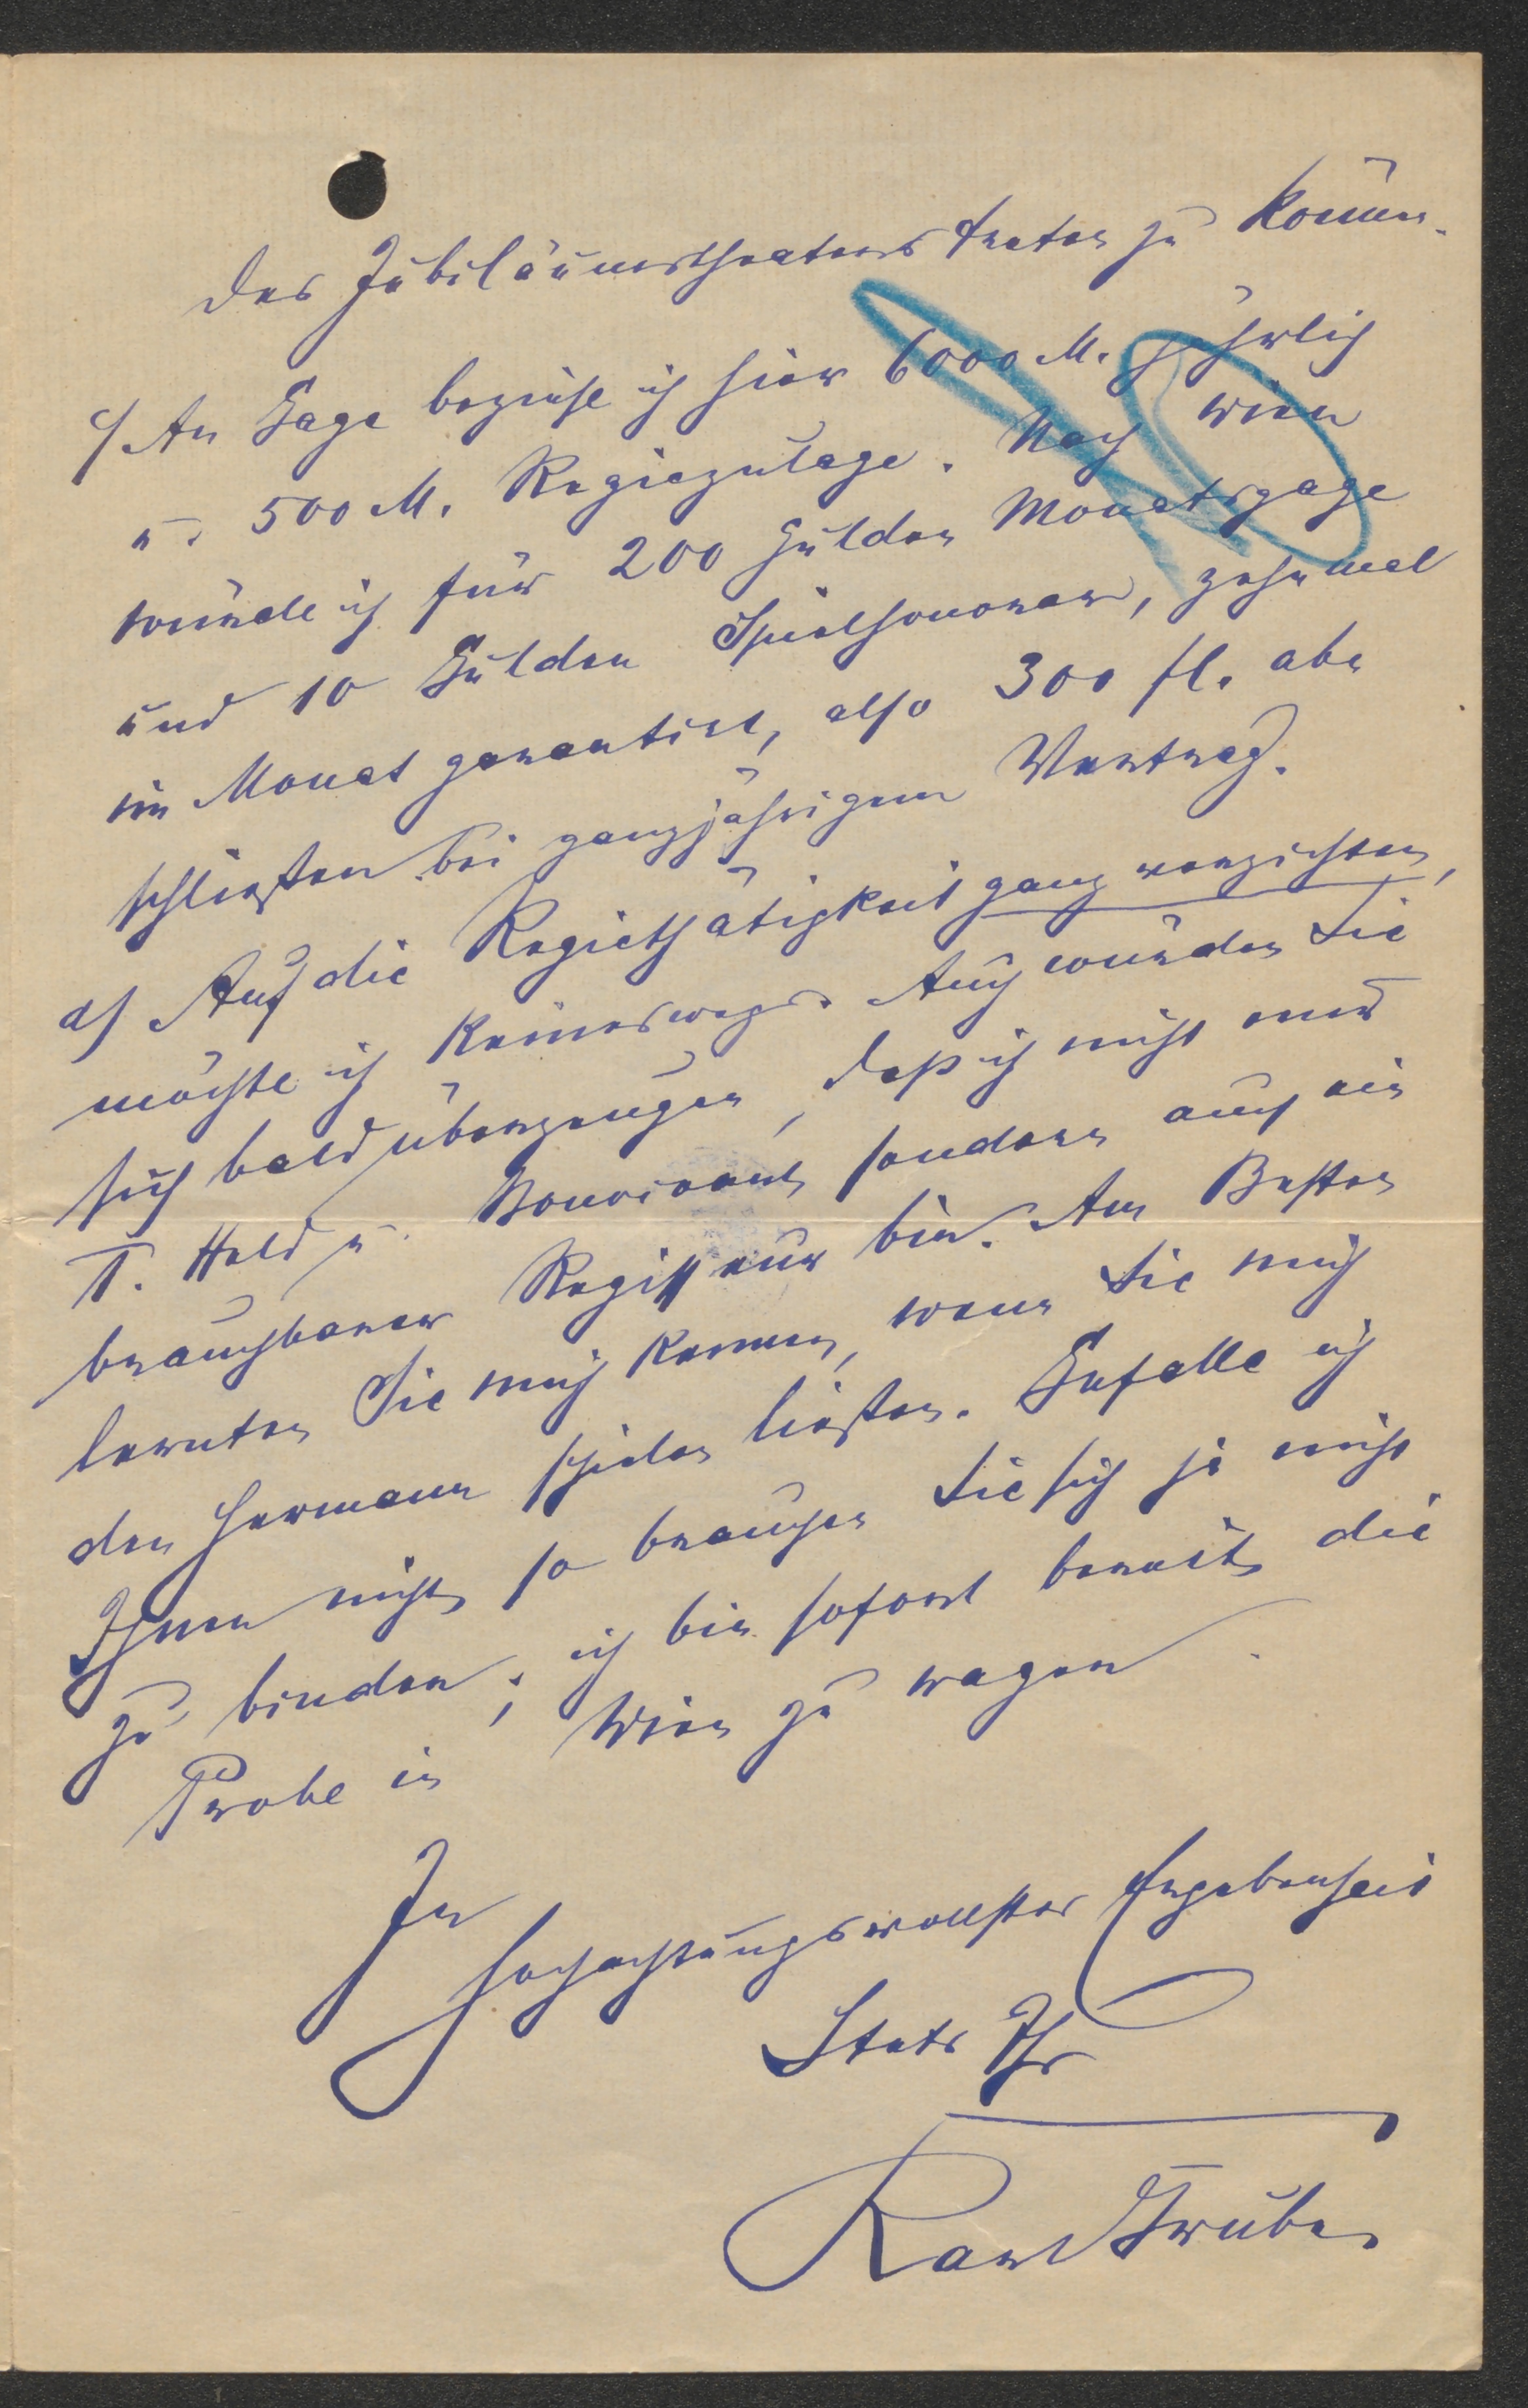 des Jubiläumstheaters treten zu können.
c) An Gage beziehe ich hier 6000 M. jährlich
u. 500 M. Regiezulage. Nach Wien
würde ich für 200 Gulden Monatsgage
und 10 Gulden Spielhonorar, zehnmal
im Monat garantirt, also 300 fl. ab
schließen bei ganzjährigem Vertrag.
d) Auf die Regiethätigkeit ganz verzichten,
möchte ich keineswegs. Auch würden Sie
sich bald überzeugen, daß ich nicht nur
I. Held u. Bonvivant sondern auch ein
brauchbarer Regisseur bin. Am Besten
lernten Sie mich kennen, wenn Sie mich
den Hermann spielen ließen. Gefalle ich
Ihnen nicht, so brauchen Sie sich ja nicht
zu binden; ich bin sofort bereit, die
Probe in Wien zu wagen.
In
hochachtungsvollster Ergebenheit
Stets Ihr
Karl